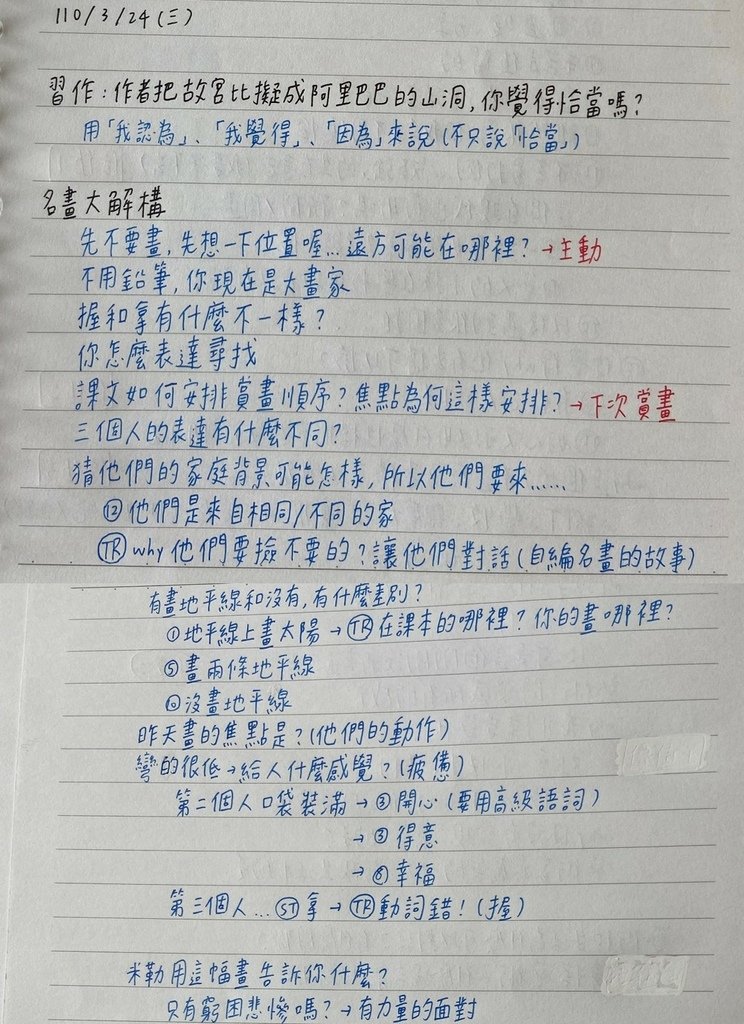 110/3/24(三)
習作：作者把故宮比擬成阿里巴巴的山洞，你覺得恰當嗎？
用「我認為」、「我覺得」、「因為」來說(不只說「恰當」)
名畫大解構
先不要畫，先想一下位置喔…遠方可能在哪裡？→主動
不用鉛筆，你現在是大畫家
握和拿有什麼不一樣？
你怎麼表達尋找
課文如何安排賞畫順序？焦點為何這樣安排？→下次賞畫
三個人的表達有什麼不同？
猜他們的家庭背景可能怎樣，所以他們要來……
⑫他們是來自相同/不同的家
(TR) why 他們要撿不要的？讓他們對話(自編名畫的故事)
有畫地平線和沒有，有什麼差別？
①地平線上畫太陽→(TR)在課本的哪裡？你的畫哪裡？
⑤畫兩條地平線
⑩沒畫地平線
昨天畫的焦點是？(他們的動作)
彎的很低→給人什麼感覺？(疲憊)
第二個人口袋裝滿→③開心(要用高級語詞)
→③得意
→⑥幸福
第三個人…(ST)拿→(TR)動詞錯！(握)
米勒用這幅畫告訴你什麼？
只有窮困悲慘嗎？→有力量的面對